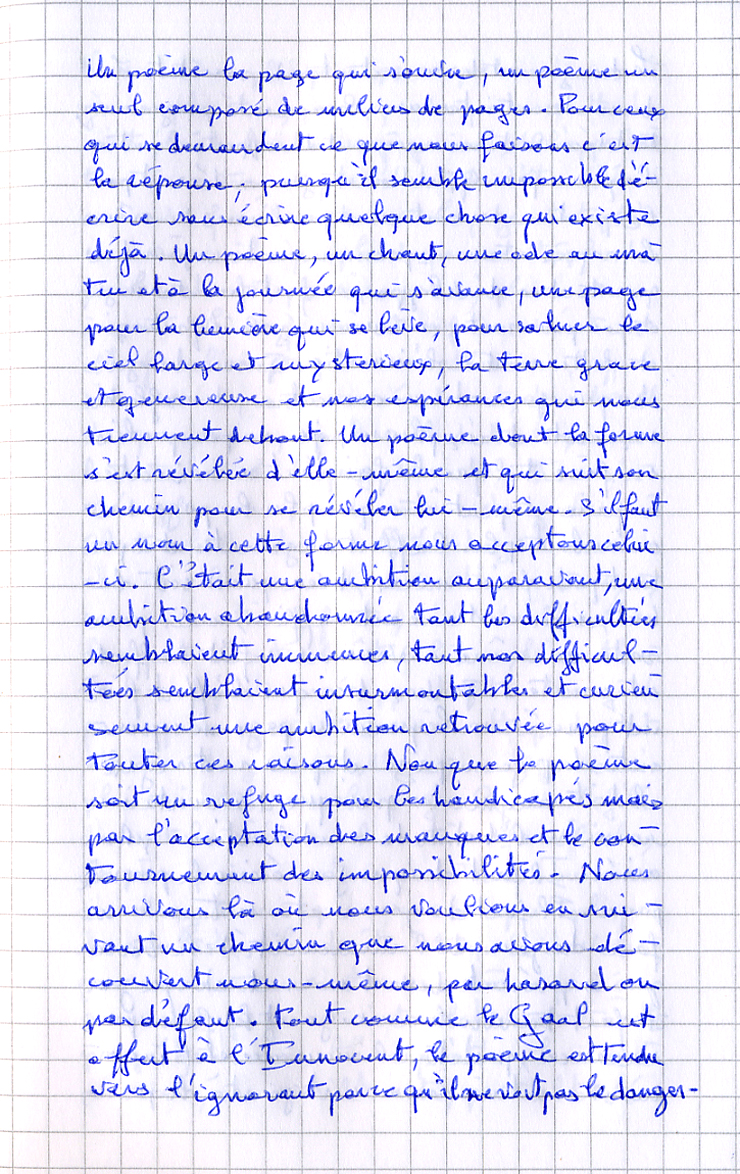 Un poème la page qui s'ouvre, un poème un
seul composé de milliers de pages. Pour ceux
qui se demandent ce que nous faisons c'est
la réponse, puisqu'il semble impossible d'é-
crire sans écrire quelque chose qui existe
déjà. Un poème, un chant, une ode au ma
tin et à la journée qui s'avance, une page
pour la lumière qui se lève, pour saluer le
ciel large et mysterieux, la terre grave
et genereuse et nos espérances qui nous
tiennent debout. Un poème dont la forme
s'est révélée d'elle-même et qui suit son
chemin pour se révéler lui-même. S'il faut
un nom à cette forme nous acceptons celui
-ci. C'était une ambition auparavant, une
ambition abandonnée tant les difficultés
semblaient immenses, tant nos difficul-
tées semblaient insurmontables et curieu
sement une ambition retrouvée pour
toutes ces raisons. Non que le poème
soit un refuge pour les handicapés mais
par l'acceptation des manques et le con-
tournement des impossibilités. Nous
arrivons là où nous voulions en sui-
vant un chemin que nous avons dé-
couvert nous-même, par hasard ou
par défaut. Tout comme le Graal est
offert à l'Innocent, le poème est tendu
vers l'ignorant parce qu'il ne voit pas le danger-